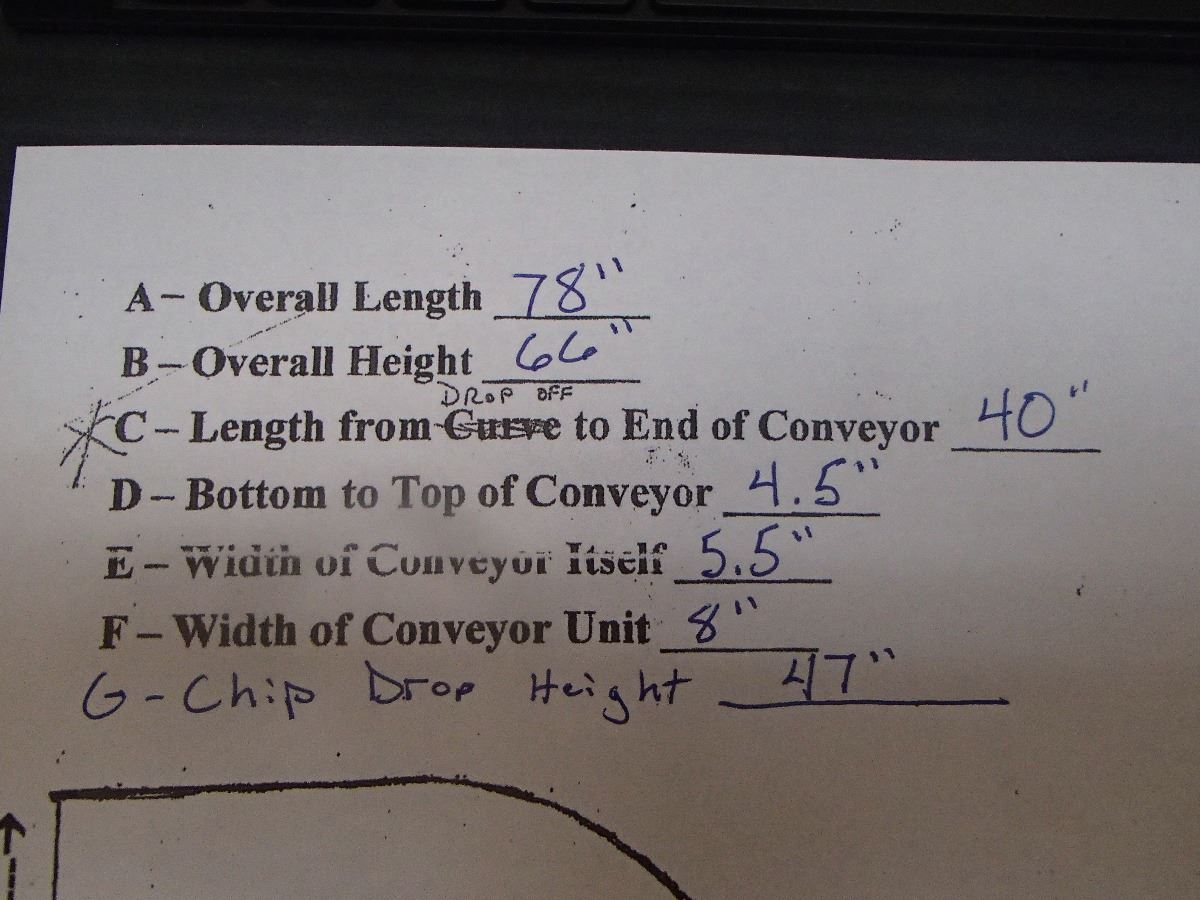 A – Overall Length 78"
B – Overall Height 66"
DROP OFF
C – Length from Curve to End of Conveyor 40"
D – Bottom to Top of Conveyor 4.5"
E – Width of Conveyor Itself 5.5"
F – Width of Conveyor Unit 8"
G - Chip Drop Height 47"